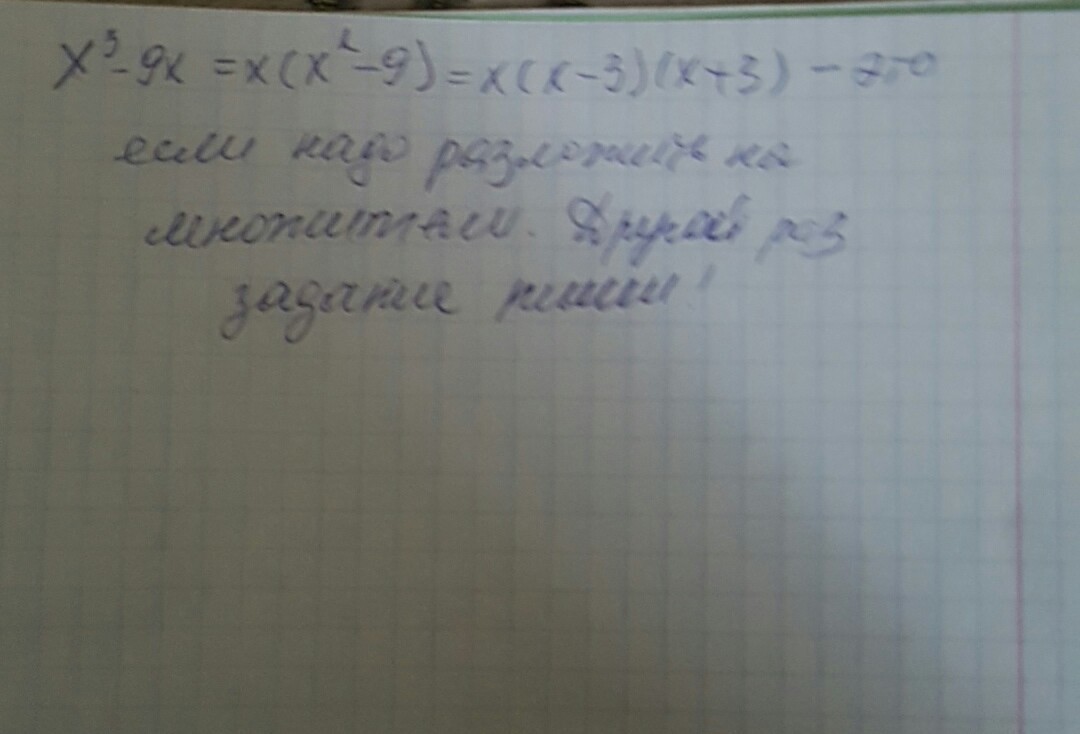 x³-9x = x(x²-9) = x(x-3)(x+3) - это
если надо разложить на
множители. Другой раз
задание пиши!